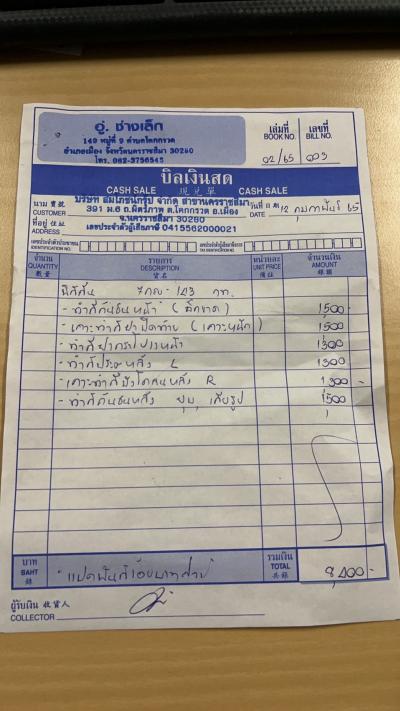 อู่. ช่างเล็ก
149 หมู่ที่ 9 ตำบลโคกกรวด
อำเภอเมือง จังหวัดนครราชสีมา 30280
โทร. 082-3756545
เล่มที่ เลขที่
BOOK NO. BILL NO.
02/65 003
บิลเงินสด
CASH SALE 現兌單 CASH SALE
นาม 寶號
CUSTOMER
บริษัท สมโภชน์กรุ๊ป จำกัด สาขานครราชสีมา
391 ม.6 ถ.มิตรภาพ ต.โคกกรวด อ.เมือง
จ.นครราชสีมา 30280
เลขประจำตัวผู้เสียภาษี 0415562000021
วันที่ 日期
DATE 12 กุมภาพันธ์ 65
ที่อยู่ 住址
ADDRESS
เลขประจำตัวประชาชน
IDENTIFICATION NO.
เลขประจำตัวผู้เสียภาษีอากร
TAX IDENTIFICATION NO.
จำนวน รายการ หน่วยละ จำนวนเงิน
QUANTITY DESCRIPTION UNIT PRICE AMOUNT
數量 貨名 價註 銀額
143 กท.
- ทำสีกันชนหน้า 1500
- เคาะทำสีฝาปิดท้าย (เคาะหนัก) 1500
- ทำสี 1300
- ทำสีประตูหลัง L 1300
- เคาะทำสีบังโคลนหลัง R 1,300
- ทำสีกันชนหลัง 1500
บาท
BAHT
銖
แปดพันสี่ร้อยบาทถ้วน
รวมเงิน
TOTAL
共銀
8,400.-
ผู้รับเงิน 收貨人
COLLECTOR